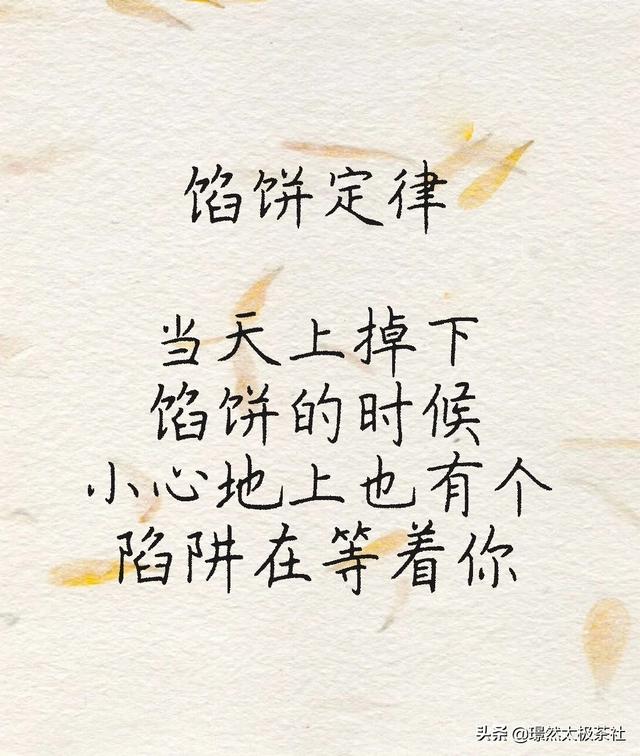 馅饼定律
当天上掉下
馅饼的时候
小心地上也有个
陷阱在等着你
头条 @璟然太极茶社